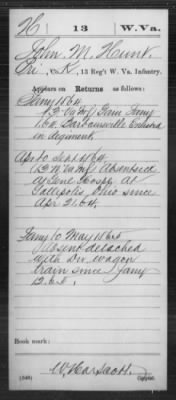 H 13 W.Va.
John M. Hunt
Pri, Co. K, 13 Reg't W. Va. Infantry.
Appears on Returns as follows:
Jany 1864.
Gain Jany
1.64. Barboursville Enlisted
in Regiment.
Apr to Sept 1864.
Absent sick
at Genl Hosp. at
Gallipolis, Ohio since
Apr 21.64.
Jany to May 1865
Absent detached
with Div. wagon
train since Jany
12.65.
Book mark:
(546)
Copyist.